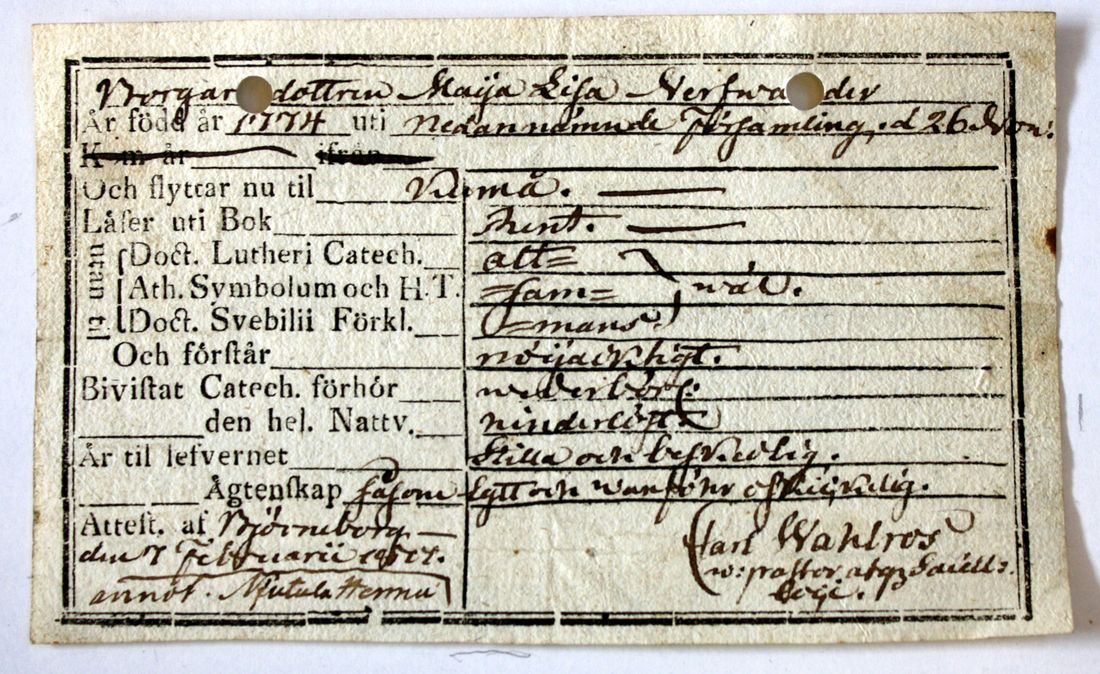 Borgaredottren Maija Lisa Nerfwander
Är född år 1774 uti nedannämnde Församling, d 26 Nov:
Kom år ifrån
Och flyttar nu til Wemå.
Låſer uti Bok Rent.
Doct. Lutheri Catech. alt=
Ath. Symbolum och H.T. =ſam= wäl.
Doct. Svebilii Förkl. =mans.
Och förſtår nöijacktigt.
Biviſtat Catech. förhör wederbör:
den hel. Nattv. hinderlöst
År til lefvernet Stilla och beskedlig.
Ägtenſkap ſåſom Lytt och wanför oſkickelig.
Atteſt. af Björneborg
den 7 Februarii
annot. Carl Wahlros
w: pastor